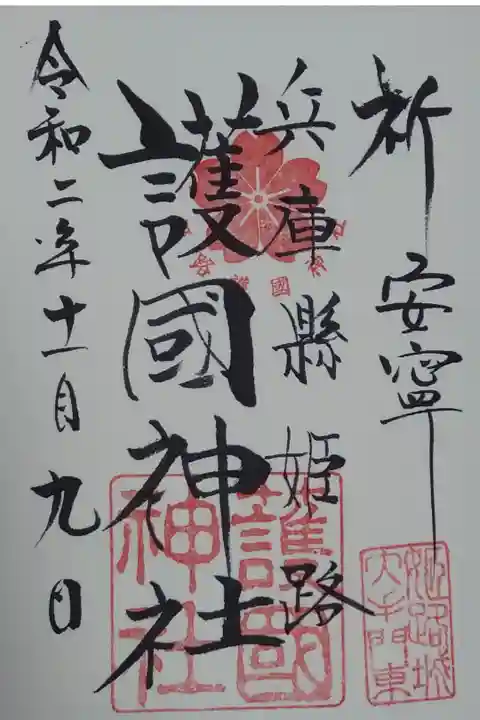 祈安寧
兵庫縣姫路
護國神社
令和二年十一月九日
護國
神社
姫路城
大手門東